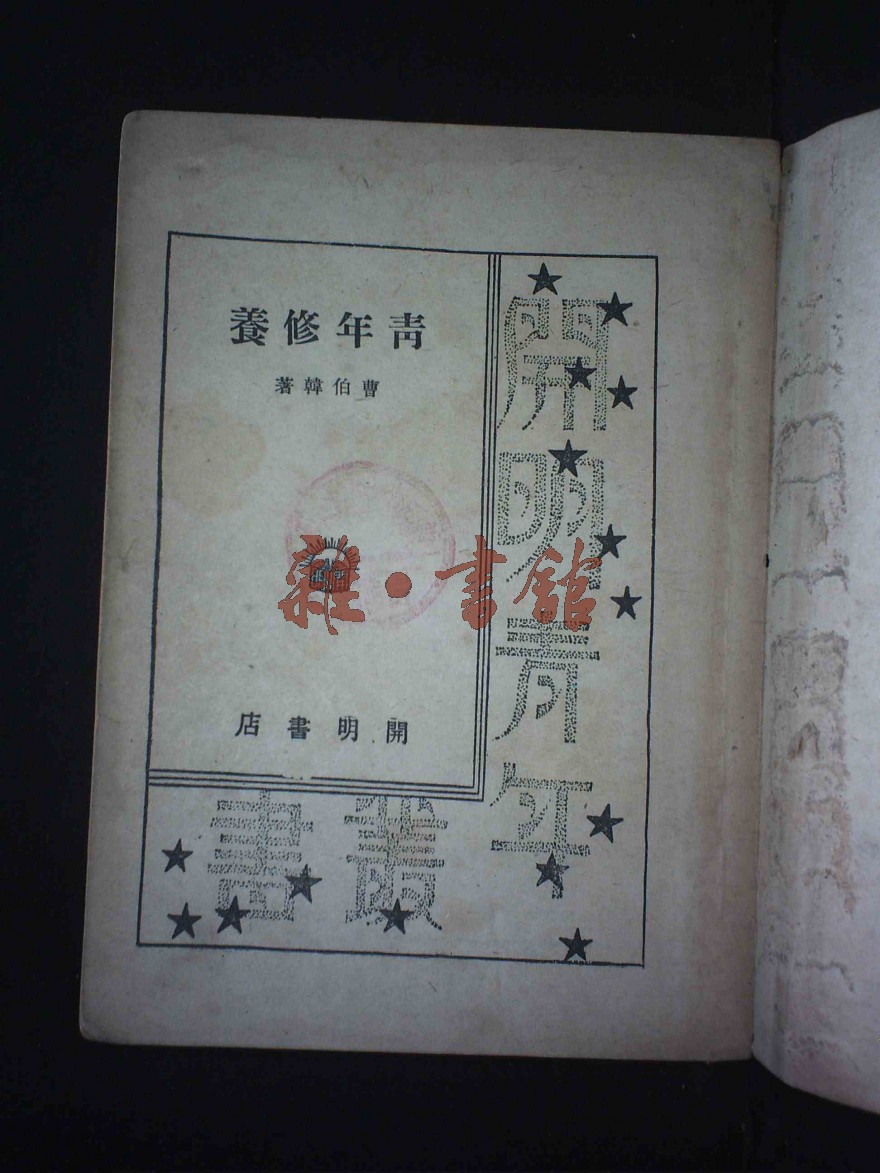 青年修養
曹伯韓著
開明書店
開明青年
叢書
雜·書館